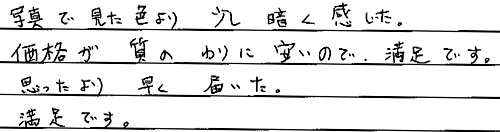 写真で見た色より 少し暗く感じた。
価格が 質のわりに安いので、満足です。
思ったより 早く 届いた。
満足です。